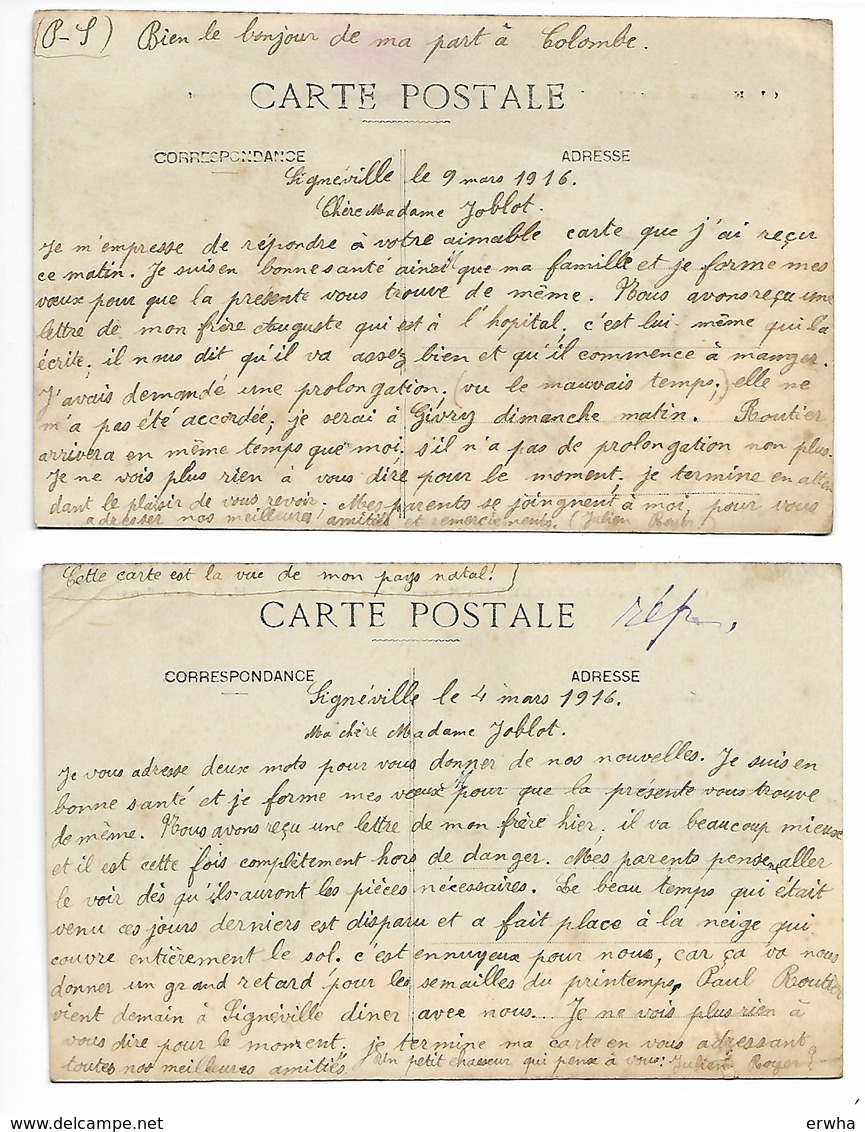 (P-S) Bien le bonjour de ma part à Colombe.
CARTE POSTALE
CORRESPONDANCE ADRESSE
Signéville le 9 mars 1916.
Chère Madame Joblot.
Je m'empresse de répondre à votre aimable carte que j'ai reçu
ce matin. Je suis en bonne santé ainsi que ma famille et je forme mes
vœux pour que la présente vous trouve de même. Nous avons reçu une
lettre de mon frère Auguste qui est à l'hopital, c'est lui-même qui l'a
écrite, il nous dit qu'il va assez bien et qu'il commence à manger.
J'avais demandé une prolongation, (vu le mauvais temps,) elle ne
m'a pas été accordée, je serai à Givry dimanche matin. Routier
arrivera en même temps que moi, s'il n'a pas de prolongation non plus.
Je ne vois plus rien à vous dire pour le moment, je termine en atten
dant le plaisir de vous revoir. Mes parents se joingnent à moi, pour vous
adresser nos meilleures amitiés et remerciements. (Julien Royer)
Cette carte est la vue de mon pays natal!
CARTE POSTALE rép.
CORRESPONDANCE ADRESSE
Signéville le 4 mars 1916.
Ma chère Madame Joblot.
Je vous adresse deux mots pour vous donner de nos nouvelles. Je suis en
bonne santé et je forme mes vœux pour que la présente vous trouve
de même. Nous avons reçu une lettre de mon frère hier, il va beaucoup mieux
et il est cette fois complètement hors de danger. Mes parents pensent aller
le voir dès qu'ils auront les pièces nécessaires. Le beau temps qui était
venu ces jours derniers est disparu et a fait place à la neige qui
couvre entièrement le sol. c'est ennuyeux pour nous, car ça va nous
donner un grand retard pour les semailles du printemps. Paul Routier
vient demain à Signéville diner avec nous. Je ne vois plus rien à
vous dire pour le moment, je termine ma carte en vous adressant
toutes nos meilleures amitiés. Un petit chasseur qui pense à vous: Julien Royer
erwha